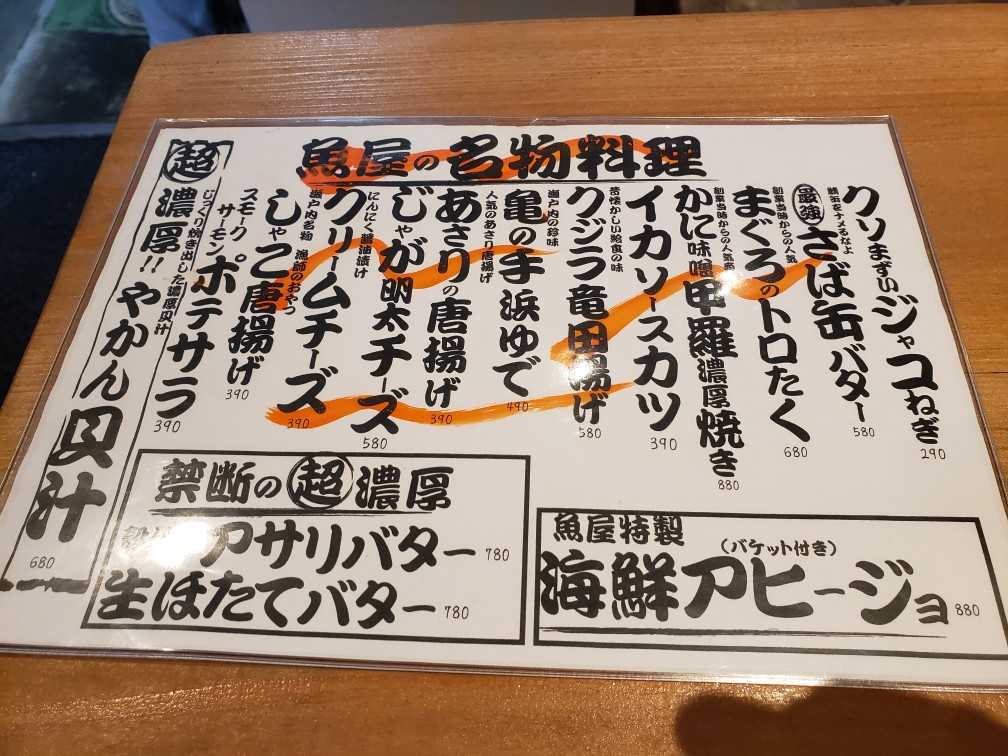 魚屋の名物料理
クソまずいジャコねぎ
290
缶をナメるなよ
最強さば缶バター
580
創業当時からの人気
まぐろのトロたく
680
創業当時からの人気
かに味噌甲羅濃厚焼き
880
イカソースカツ
390
昔懐かしい給食の味
クジラ竜田揚げ
580
瀬戸内の珍味
亀の手浜ゆで
490
人気のあさり唐揚げ
あさりの唐揚げ
390
じゃが明太チーズ
580
にんにく醤油漬け
クリームチーズ
390
瀬戸内名物 漁師のおやつ
しゃこ唐揚げ
390
スモークサーモンポテサラ
390
じっくり炊き出した濃厚貝汁
超濃厚!!やかん貝汁
680
禁断の超濃厚
アサリバター 780
生ほたてバター 780
魚屋特製
(バケット付き)
海鮮アヒージョ 880